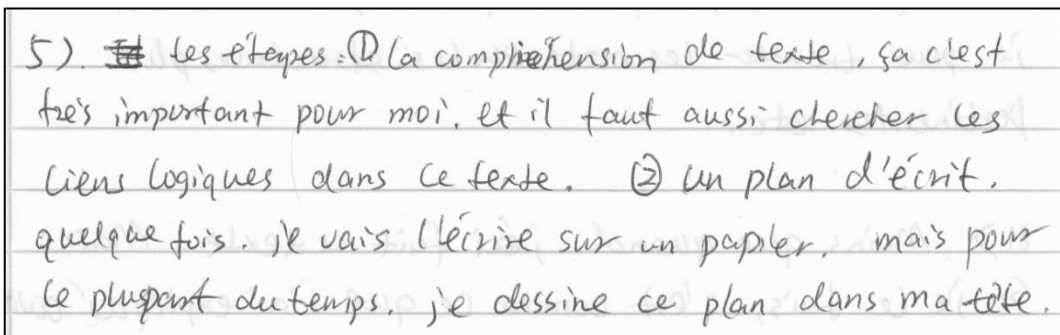 5). Les étapes: ① La compréhension de texte, ça c'est
très important pour moi. et il faut aussi chercher les
liens logiques dans ce texte. ② un plan d'écrit.
quelque fois. je vais l'écrire sur un papier. mais pour
le plupart du temps. je dessine ce plan dans ma tête.